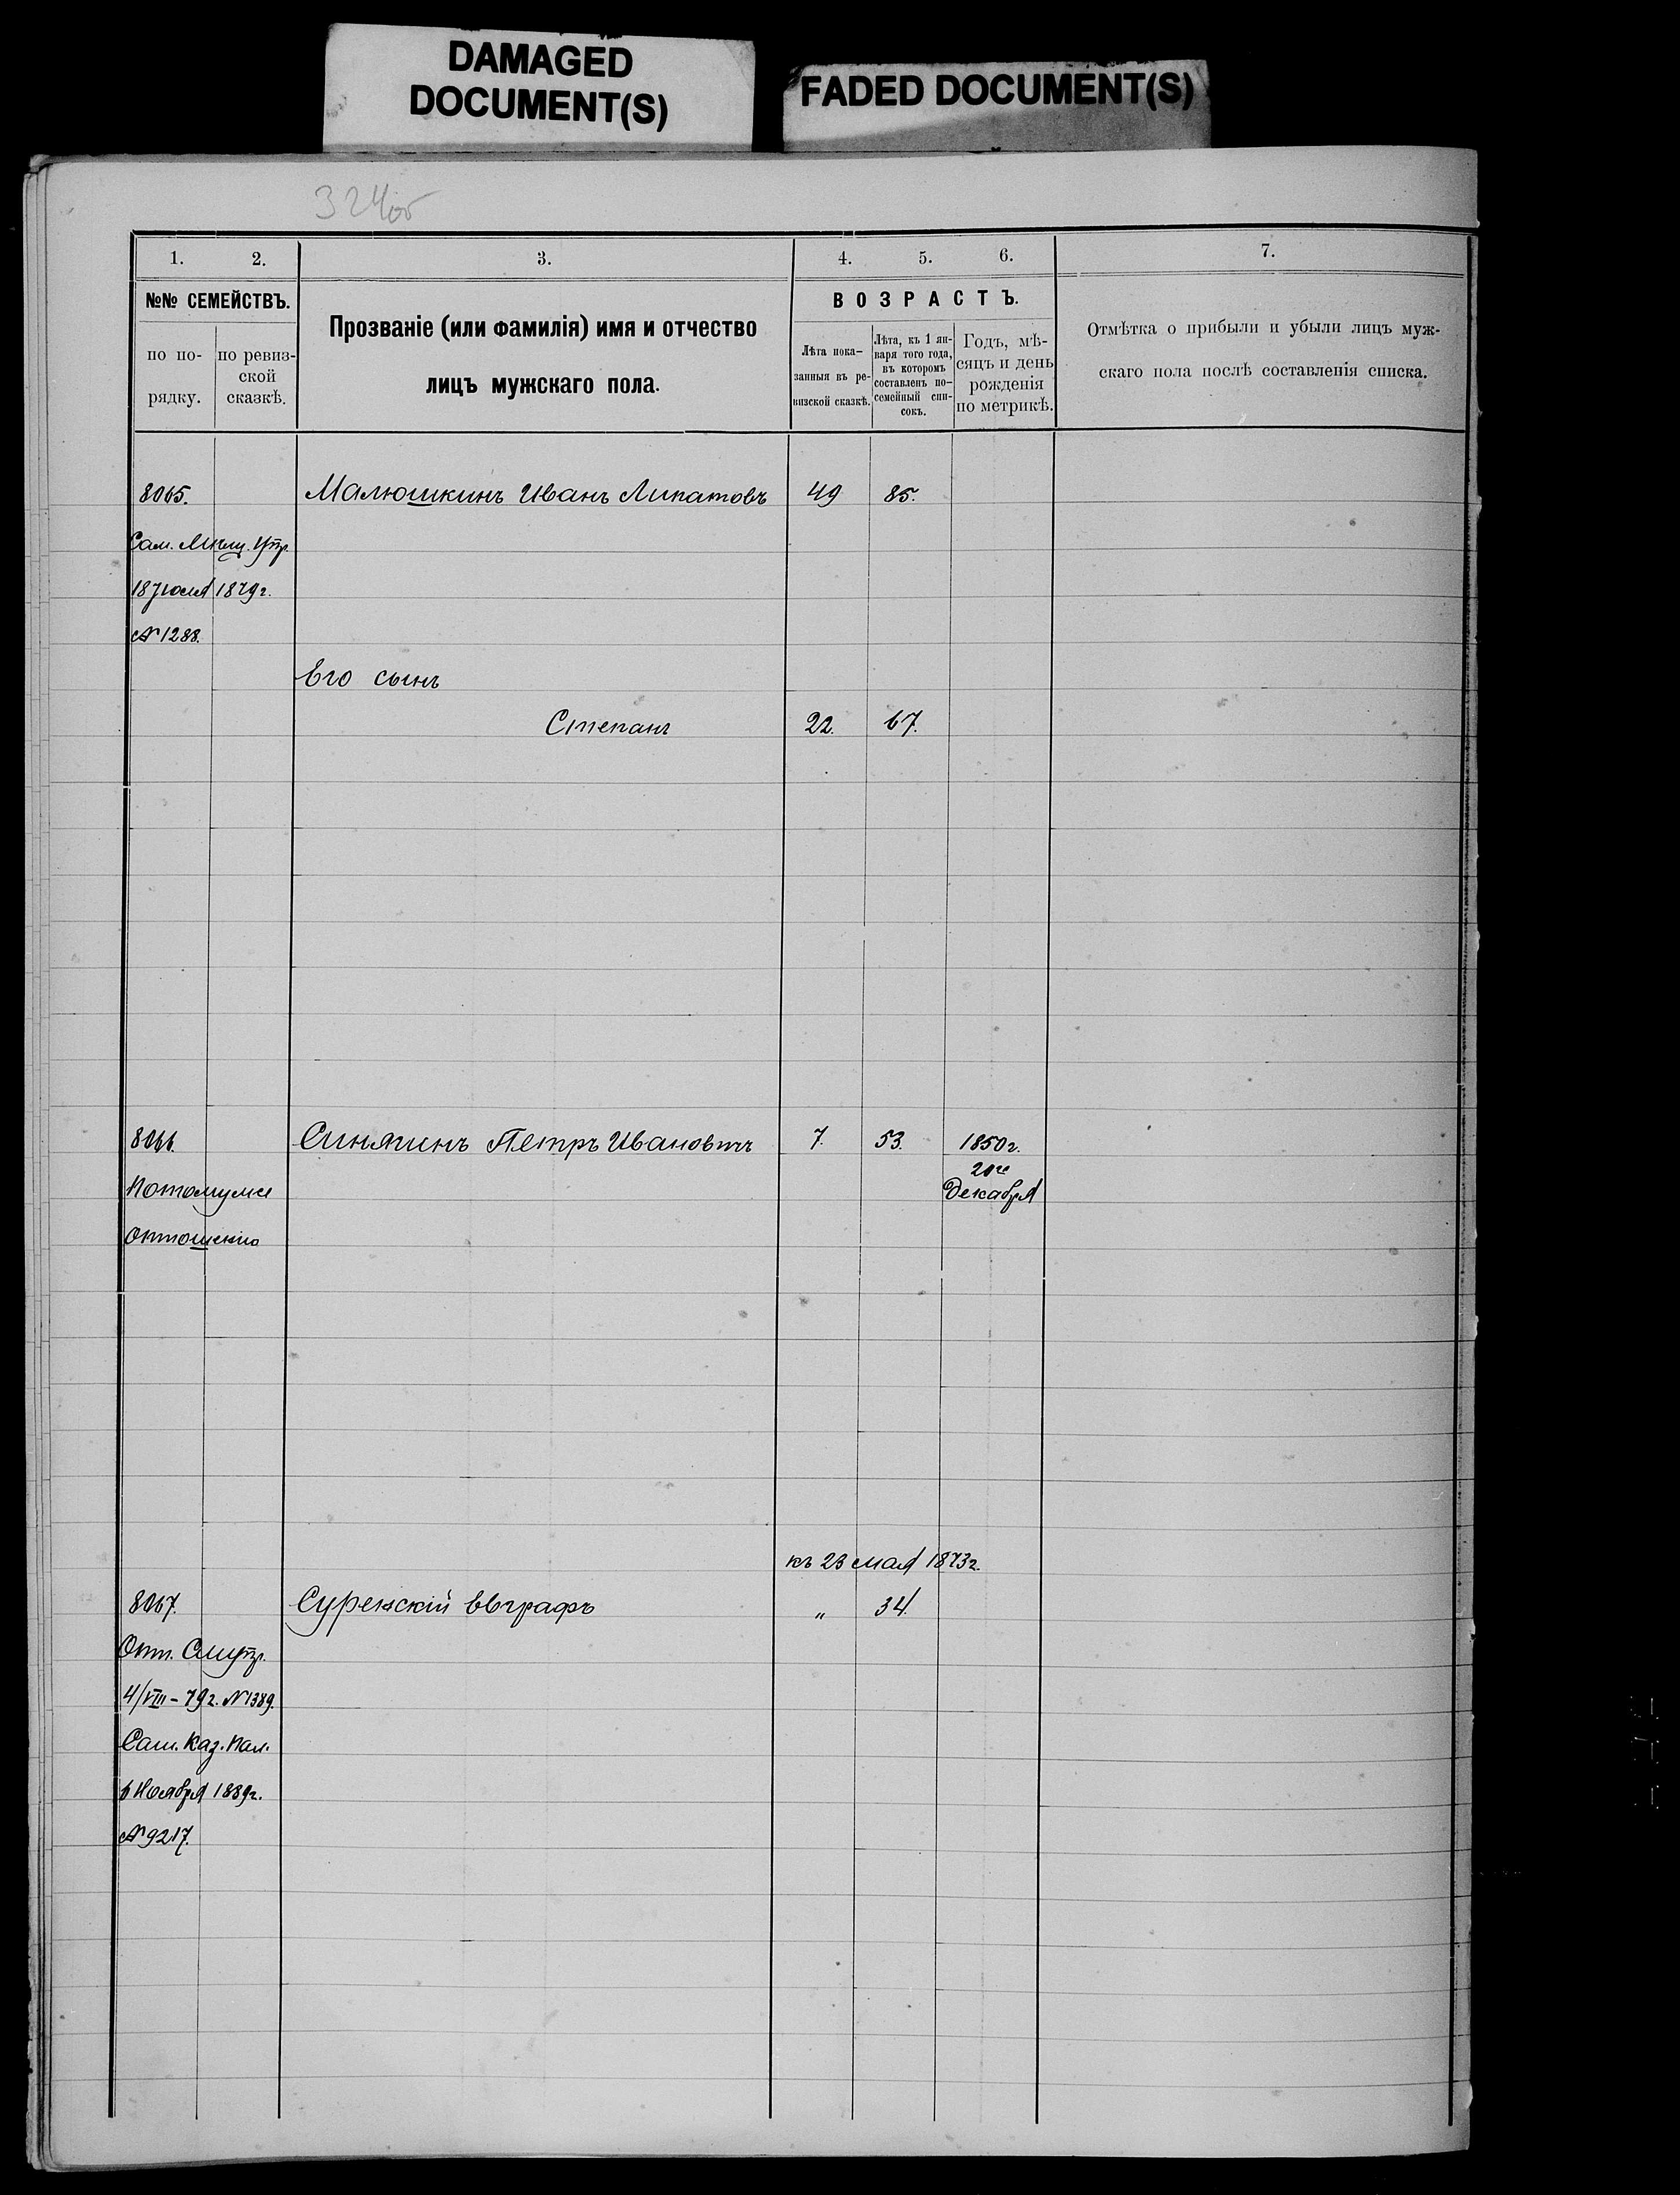 DAMAGED
DOCUMENT(S)
FADED DOCUMENT(S)
324об
1. 2. 3. 4. 5. 6. 7.
№№ СЕМЕЙСТВЪ.
по по-
рядку.
по ревиз-
ской
сказкѣ.
Прозваніе (или фамилія) имя и отчество
лицъ мужскаго пола.
ВОЗРАСТЪ.
Лѣта пока-
занныя въ ре-
визской сказкѣ.
Лѣта, къ 1 ян-
варя того года,
въ которомъ
составленъ по-
семейный спи-
сокъ.
Годъ, мѣ-
сяцъ и день
рожденія
по метрикѣ.
Отмѣтка о прибыли и убыли лицъ муж-
скаго пола послѣ составленія списка.
8065. Малюшкинъ Иванъ Липатовъ 49 85.
Сам. Мѣщ. Упр.
18 Іюля 1879 г.
№ 1288.
Его сынъ
Степанъ 22. 67.
8066. Синягинъ Петръ Ивановичъ 7. 53. 1850 г.
20го
Потомуже Декабря
отношенію
къ 23 мая 1873 г.
8067. Суренскій Евграфъ „ 34.
4/VIII - 79 г. № 1389.
Сам. Каз. Пал.
6 Ноября 1889 г.
№ 9217.